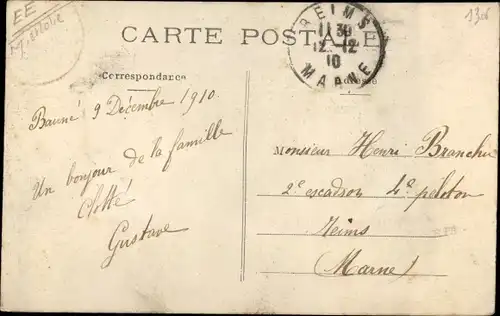 EE
1306
CARTE POSTALE
REIMS
11 30
12 - 12
10
MARNE
Correspondance
Adresse
Baune 9 Décembre 1910.
Un bonjour de la famille
Clotté
Gustave
Monsieur Henri Branchu
2e escadron 4e peloton
Reims
(Marne)